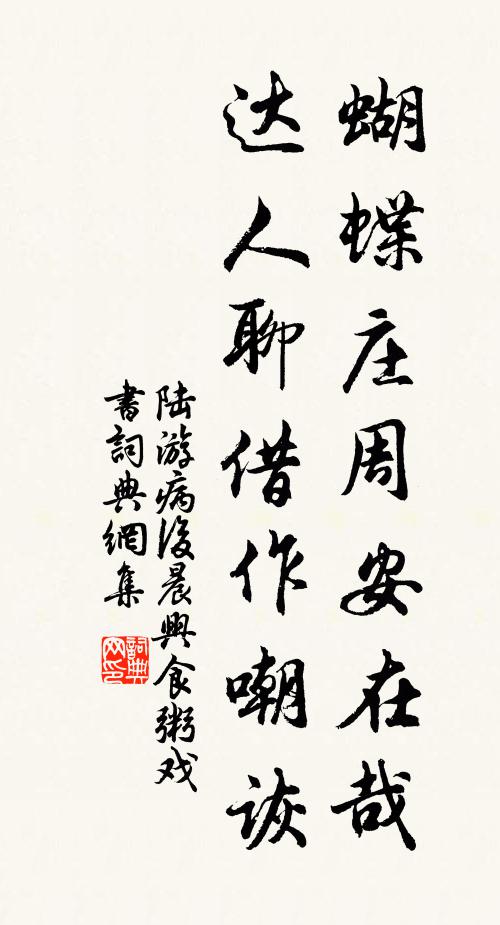 蝴蝶庄周安在哉
达人聊借作嘲诙
陆游病後晨興食粥戏
書詞典網集
詞典网印